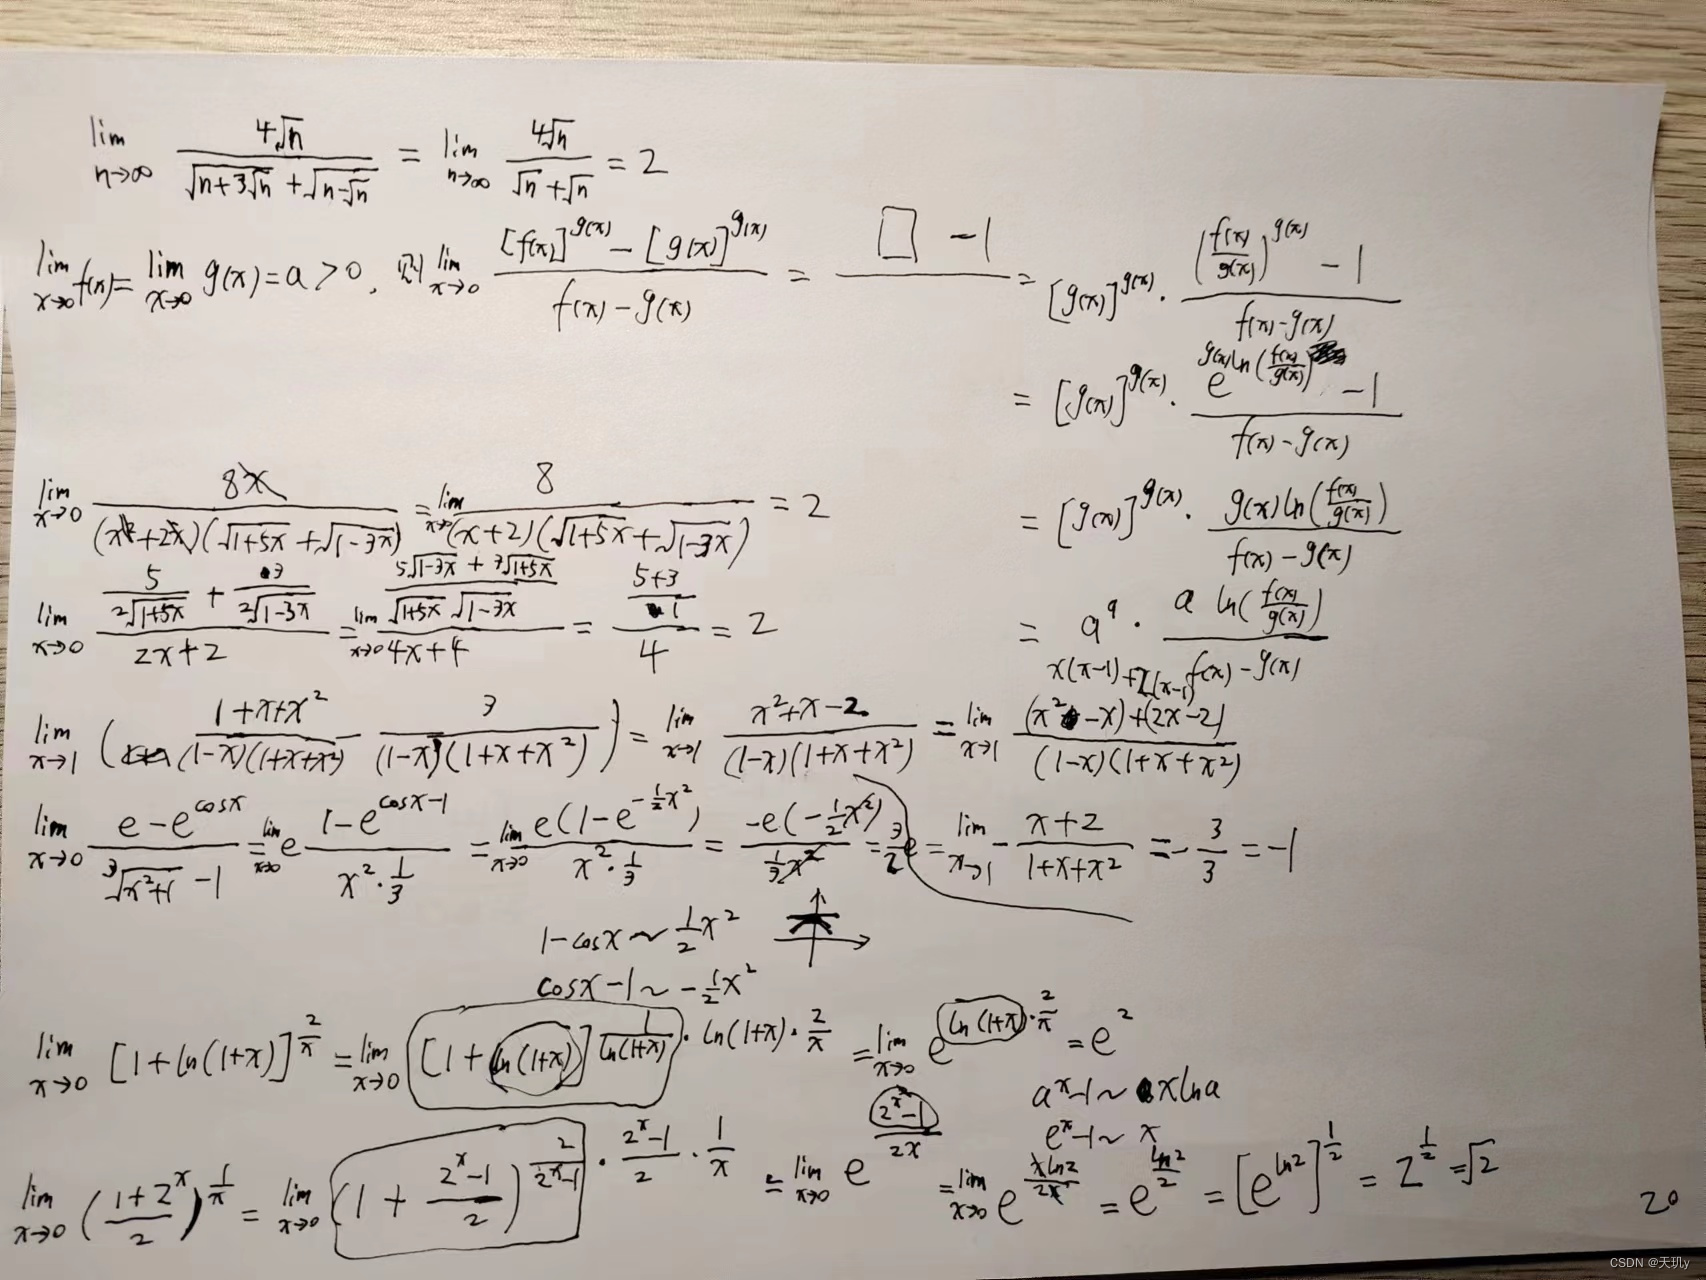 lim n→∞ 4√n / (√(n+3√n) + √(n-√n)) = lim n→∞ 4√n / (√n + √n) = 2
lim x→0 f(x) = lim x→0 g(x) = a > 0, 则 lim x→0 ([f(x)]^g(x) - [g(x)]^g(x)) / (f(x) - g(x)) = (□ - 1) / = [g(x)]^g(x) · ((f(x)/g(x))^g(x) - 1) / (f(x) - g(x))
= [g(x)]^g(x) · (e^(g(x) ln(f(x)/g(x))) - 1) / (f(x) - g(x))
= [g(x)]^g(x) · g(x) ln(f(x)/g(x)) / (f(x) - g(x))
= a^a · a ln(f(x)/g(x)) / (f(x) - g(x))
lim x→0 8x / ((x²+2x)(√(1+5x) + √(1-3x))) = lim x→0 8 / ((x+2)(√(1+5x) + √(1-3x))) = 2
lim x→0 (5/(2√(1+5x)) + 3/(2√(1-3x))) / (2x+2) = lim x→0 ((5√(1-3x) + 3√(1+5x)) / (√(1+5x) √(1-3x))) / (4x+4) = ((5+3)/1) / 4 = 2
x(x-1)+2(x-1)
lim x→1 ((1+x+x²) / ((1-x)(1+x+x²)) - 3 / ((1-x)(1+x+x²))) = lim x→1 (x²+x-2) / ((1-x)(1+x+x²)) = lim x→1 ((x²-x)+(2x-2)) / ((1-x)(1+x+x²))
= lim x→1 - (x+2) / (1+x+x²) = - 3/3 = -1
lim x→0 (e - e^cosx) / (³√(x²+1) - 1) = lim x→0 e (1 - e^(cosx-1)) / (x²·1/3) = lim x→0 e(1 - e^(-1/2 x²)) / (x²·1/3) = -e(-1/2 x²) / (1/3 x²) = 3/2 e
1-cosx ~ 1/2 x²
cosx-1 ~ -1/2 x²
lim x→0 [1+ln(1+x)]^(2/x) = lim x→0 [1+ln(1+x)]^(1/ln(1+x) · ln(1+x) · 2/x) = lim x→0 e^(ln(1+x)·2/x) = e²
a^x-1 ~ xlna
e^x-1 ~ x
lim x→0 ((1+2^x)/2)^(1/x) = lim x→0 (1 + (2^x-1)/2)^(2/(2^x-1) · (2^x-1)/2 · 1/x) = lim x→0 e^((2^x-1)/2x) = lim x→0 e^(xln2/2x) = e^(ln2/2) = [e^ln2]^(1/2) = 2^(1/2) = √2
20
CSDN @天玑y